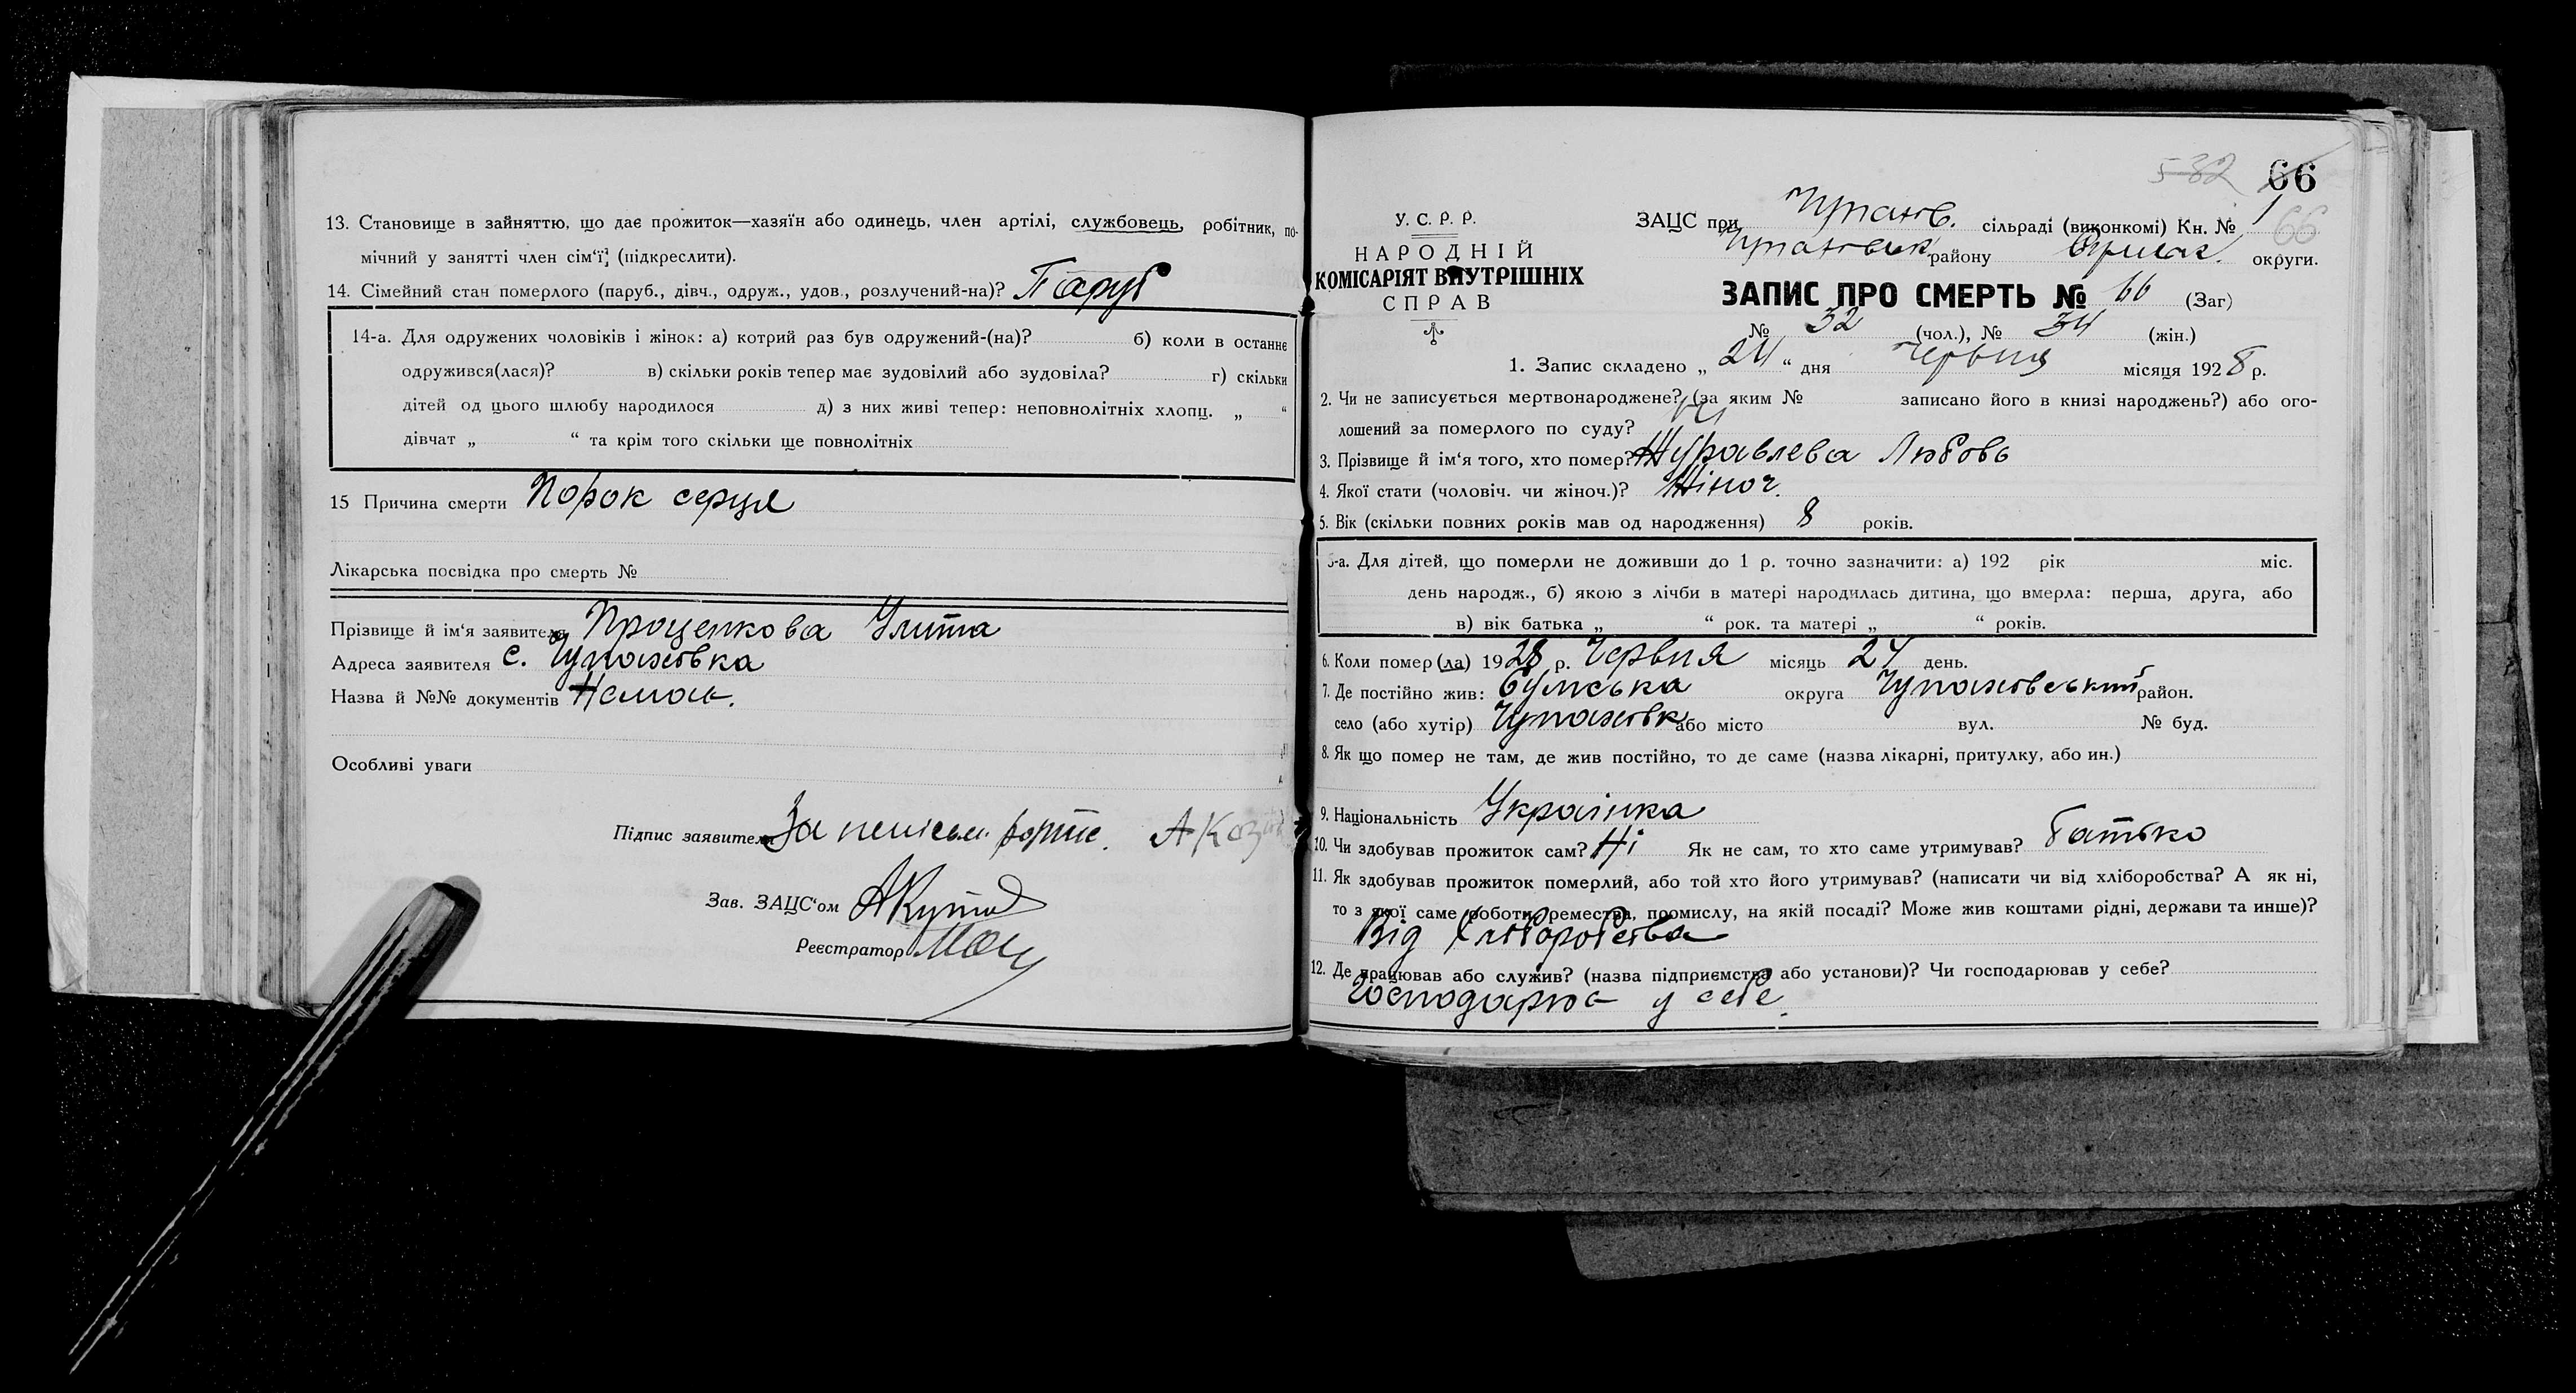 13. Становище в зайняттю, що дає прожиток—хазяїн або одинець, член артілі, службовець, робітник, по-
мічний у занятті член сім‘ї, (підкреслити).
14. Сімейний стан померлого (паруб., дівч., одруж., удов., розлучений-на)? Паруб
14-а. Для одружених чоловіків і жінок: а) котрий раз був одружений-(на)? б) коли в останнє
одружився(лася)? в) скільки років тепер має зудовілий або зудовіла? г) скільки
дітей од цього шлюбу народилося д) з них живі тепер: неповнолітніх хлопц. „ “
дівчат „ “ та крім того скільки ще повнолітніх
15 Причина смерти Порок серця
Лікарська посвідка про смерть №
Прізвище й ім‘я заявителя Проценкова Улита
Адреса заявителя с. Чупаховка
Назва й №№ документів Немає.
Особливі уваги
Підпис заявителя За
Зав. ЗАЦС‘ом
Реєстратор
532 66
У. С. Р. Р.
НАРОДНІЙ
КОМІСАРІЯТ ВНУТРІШНІХ
СПРАВ
ЗАЦС при Чупахів. сільраді (виконкомі) Кн. № 1
66
району округи.
ЗАПИС ПРО СМЕРТЬ № 66 (Заг)
№ 32 (чол.), № 34 (жін.)
1. Запис складено „ 24 “ дня Червня місяця 1928 р.
2. Чи не записується мертвонароджене? (за яким № записано його в книзі народжень?) або ого-
лошений за померлого по суду? Ні
3. Прізвище й ім‘я того, хто помер? Журавлева Любовь
4. Якої стати (чоловіч. чи жіноч.)? Жіноч.
5. Вік (скільки повних років мав од народження) 8 років.
5-а. Для дітей, що померли не доживши до 1 р. точно зазначити: а) 192 рік міс.
день народж., б) якою з лічби в матері народилась дитина, що вмерла: перша, друга, або
в) вік батька „ “ рок. та матері „ “ років.
6. Коли помер (ла) 1928 р. Червня місяць 24 день.
7. Де постійно жив: Сумська округа Чупаховський район.
село (або хутір) Чупаховк або місто вул. № буд.
8. Як що помер не там, де жив постійно, то де саме (назва лікарні, притулку, або ин.)
9. Національність Українка
10. Чи здобував прожиток сам? Ні Як не сам, то хто саме утримував? батько
11. Як здобував прожиток померлий, або той хто його утримував? (написати чи від хліборобства? А як ні,
то з якої саме роботи, ремества, промислу, на якій посаді? Може жив коштами рідні, держави та инше)?
Від Хліборобства
12. Де працював або служив? (назва підприємства або установи)? Чи господарював у себе?
Господарює у себе.